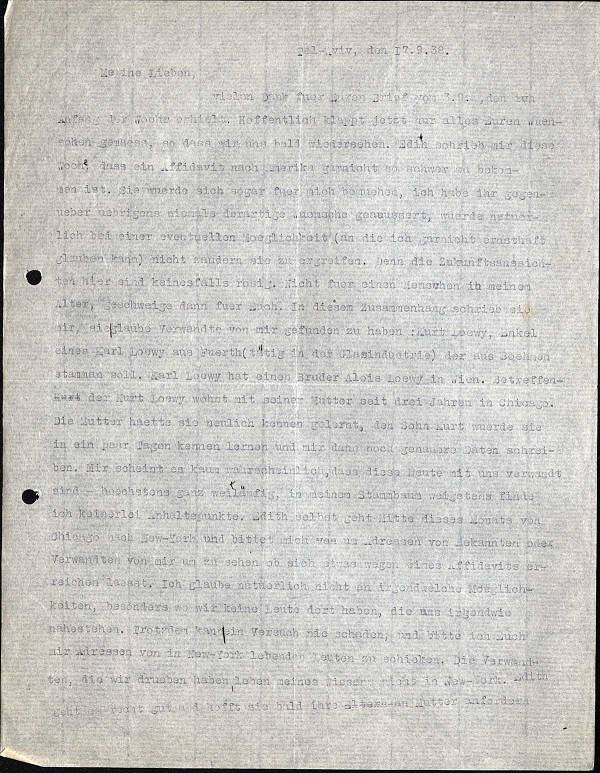 Tel-Aviv, den 17.9.38.
Meine Lieben,
vielen Dank fuer Euren Brief vom den ich
Anfang der Woche erhielt. Hoffentlich klappt jetzt nur alles Euren Wuen-
schen gemaess, so dass wir uns bald wiedersehen. Edith schrieb mir diese
Woche, dass ein Affidavit nach Amerika garnicht so schwer zu bekom-
men ist. Sie wuerde sich sogar fuer mich bemuehen, ich habe ihr gegen-
ueber uebrigens niemals derartige Wuensche geaeussert, wuerde natuer-
lich bei einer eventuellen Moeglichkeit (an die ich garnicht ernsthaft
glauben kann) nicht zaudern sie zu ergreifen. Denn die Zukunftsaussich-
ten hier sind keinesfalls rosig. Nicht fuer einen Menschen in meinem
Alter, geschweige denn fuer Euch. In diesem Zusammenhang schrieb sie
mir, sie glaube Verwandte von mir gefunden zu haben :Kurt Loewy, Enkel
eines Karl Loewy aus Fuerth(tätig in der Glasindustrie) der aus Boehmen
stammen soll. Karl Loewy hat einen Bruder Alois Loewy in Wien. Betreffen-
der Kurt Loewy wohnt mit seiner Mutter seit drei Jahren in Chicago.
Die Mutter haette sie neulich kennen gelernt, den Sohn Kurt wuerde sie
in ein paar Tagen kennen lernen und mir dann noch genauere Daten schrei-
ben. Mir scheint es kaum wahrscheinlich,dass diese Leute mit uns verwandt
sind - hoechstens ganz weiläufig, in meinem Stammbaum wenigstens finde
ich keinerlei Anhaltspunkte. Edith selbst geht Mitte dieses Monats von
Chicago nach New-York und bittet mich um Adressen von Bekannten oder
Verwandten von mir um zu sehen ob sich etwas wegen eines Affidavits er-
reichen laesst. Ich glaube natuerlich nicht an irgendwelche Moeglich-
keiten, besonders wo wir keine Leute dort haben, die uns irgendwie
nahestehen. Trotzdem kann ein Versuch nie schaden, und bitte ich Euch
mir Adressen von in New-York lebenden Leuten zu schicken. Die Verwand-
ten, die wir drueben haben leben meines Wissens nicht in New-York. Edith
geht es recht gut und hofft sie bald ihre Mutter anfordern